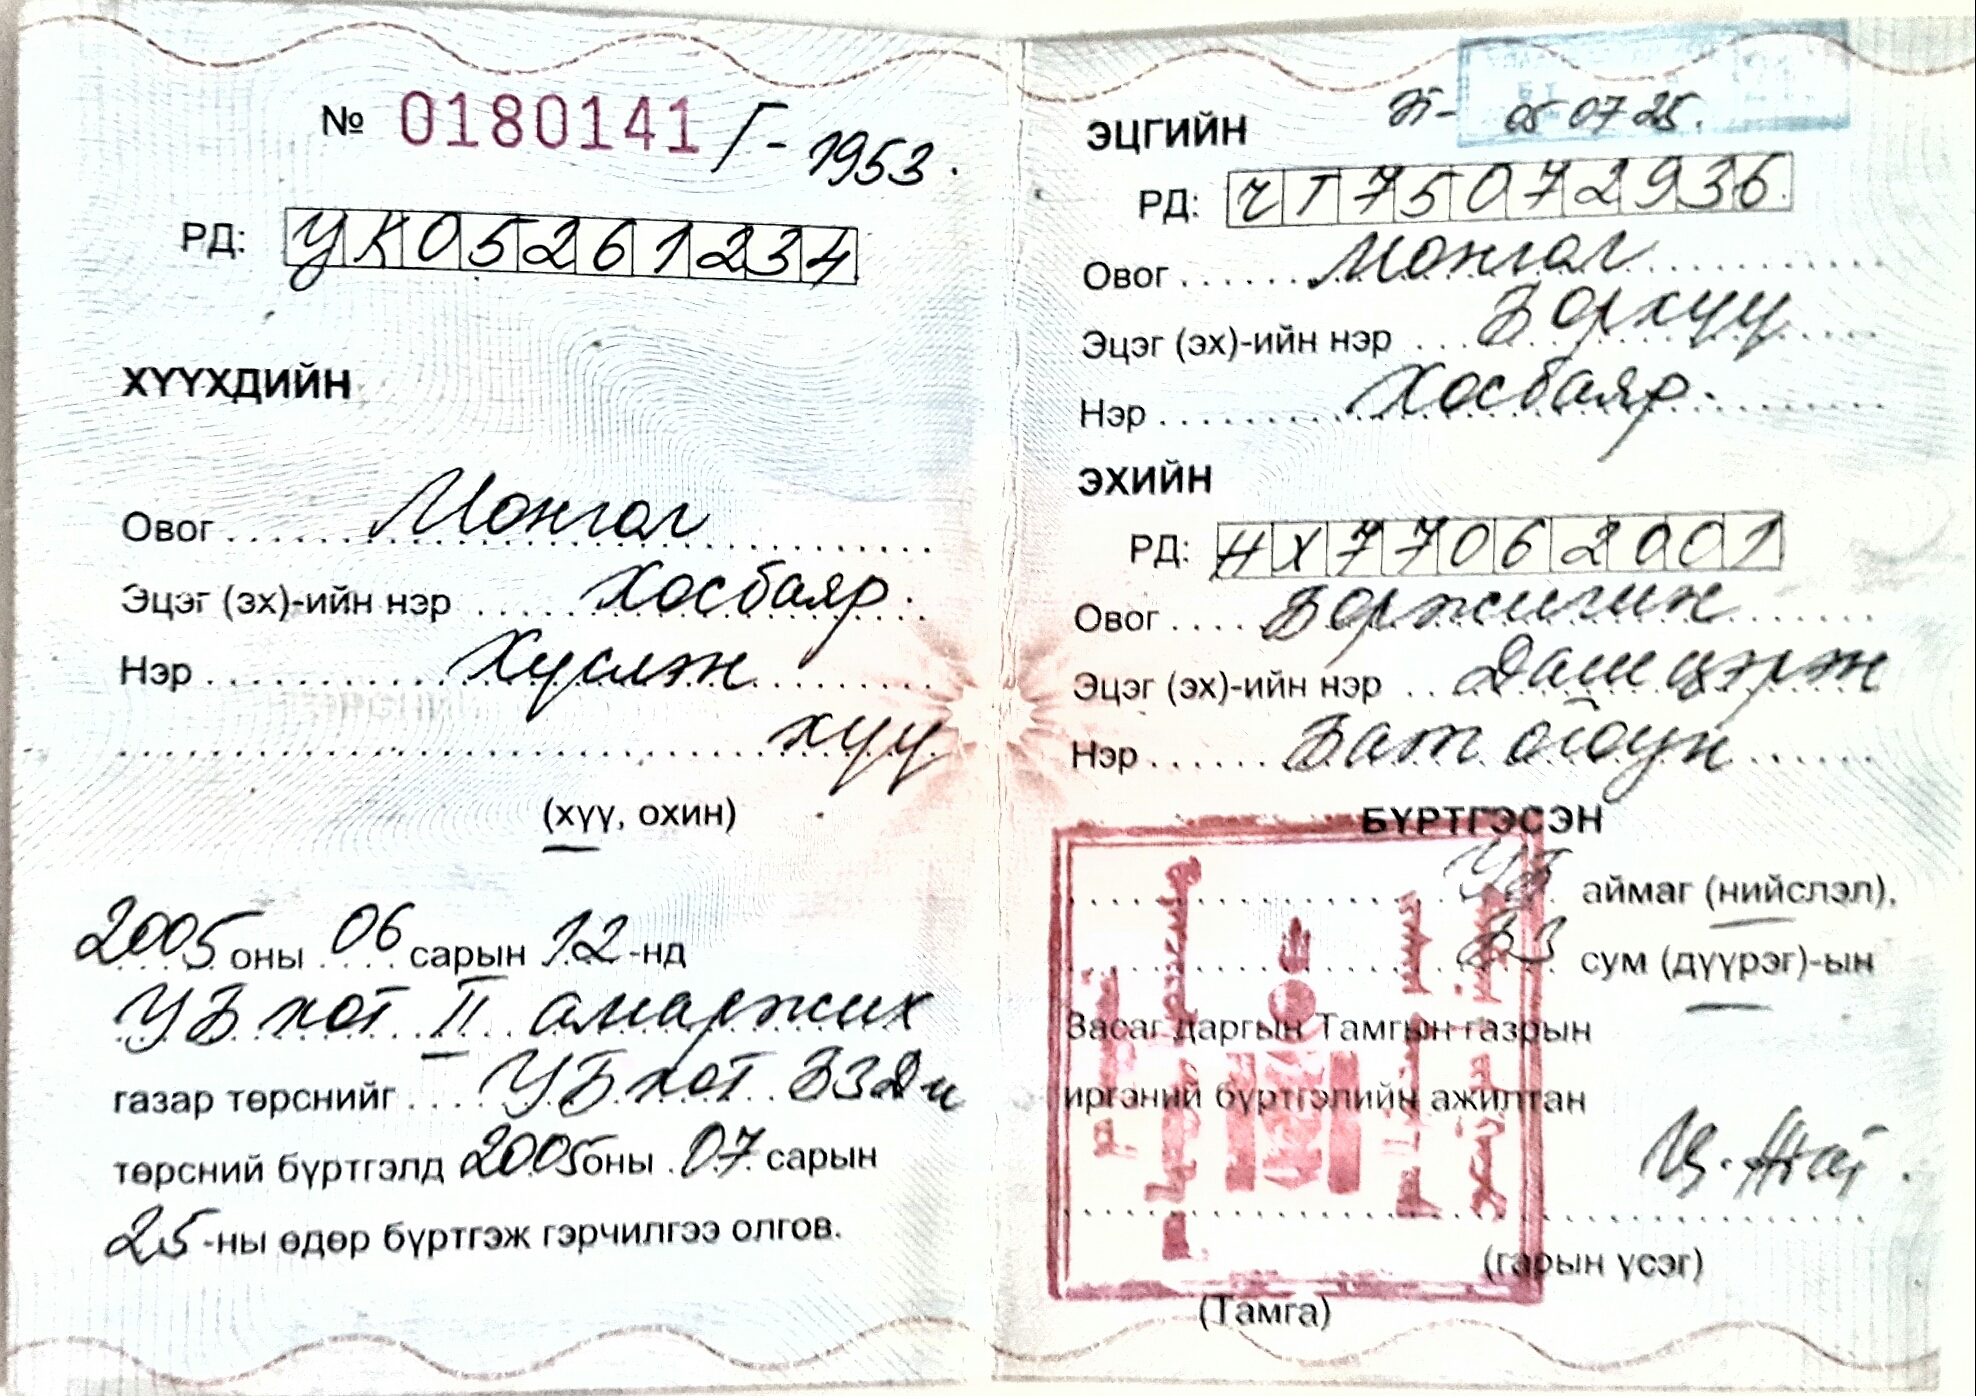 № 0180141 Г-1953.
РД: УК05261234
ХҮҮХДИЙН
Овог Монгол
Эцэг (эх)-ийн нэр Хосбаяр.
Нэр Хүслэн
хүү
(хүү, охин)
2005 оны 06 сарын 12-нд
УБ хот II амаржих
газар төрснийг УБ хот БЗД-н
төрсний бүртгэлд 2005 оны 07 сарын
25-ны өдөр бүртгэж гэрчилгээ олгов.
05 07 25.
ЭЦГИЙН
РД: ЧТ75072936
Овог Монгол
Эцэг (эх)-ийн нэр Борхүү
Нэр Хосбаяр.
ЭХИЙН
РД: НХ77062001
Овог Боржигин
Эцэг (эх)-ийн нэр Дашцэрэн
Нэр Бат оюун
БҮРТГЭСЭН
УБ аймаг (нийслэл),
БЗ сум (дүүрэг)-ын
Засаг даргын Тамгын газрын
иргэний бүртгэлийн ажилтан
(гарын үсэг)
(Тамга)